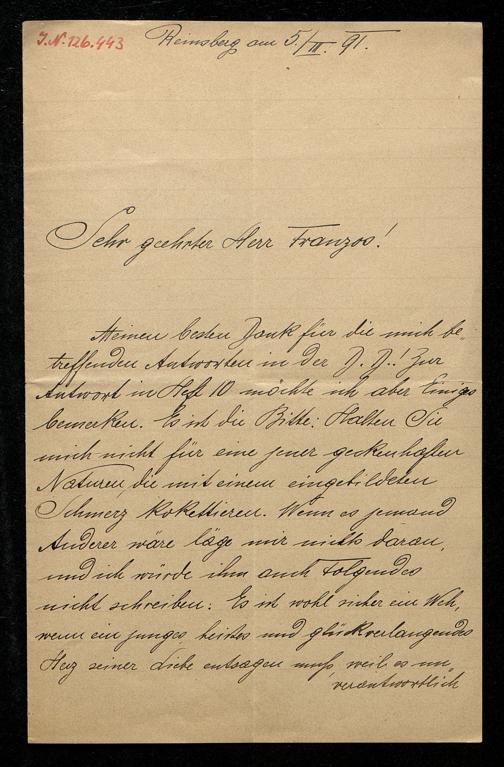 J.N. 126.443
Reinsberg am 5./III. 91.
Sehr geehrter Herr Franzos!
Meinen besten Dank für die mich be-
treffenden Antworten in der D. D.! Zur
Antwort in Heft 10 möchte ich aber Einiges
bemerken. Es ist die Bitte: Halten Sie
mich nicht für eine jener geckenhaften
Naturen, die mit einem eingebildeten
Schmerz kokettieren. Wenn es jemand
Anderer wäre läge mir nichts daran,
und ich würde ihm auch Folgendes
nicht schreiben: Es ist wohl sicher ein Weh,
wenn ein junges heißes und glückverlangendes
Herz seiner Liebe entsagen muß, weil es un-
verantwortlich